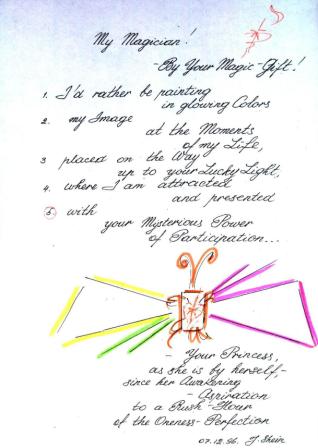 My Magician!
- By Your Magic-Gift!
1. I'd rather be painting
in glowing Colors
2. my Image
at the Moments
of my Life,
3 placed on the Way
up to your Lucky Light,
4. where I am attracted
and presented
5. with
your Mysterious Power
of Participation...
- Your Princess,
as she is by herself,-
since her Awakening
- Aspiration
to a Rush-Hour
of the Oneness-Perfection
07.12.96. J. Shein